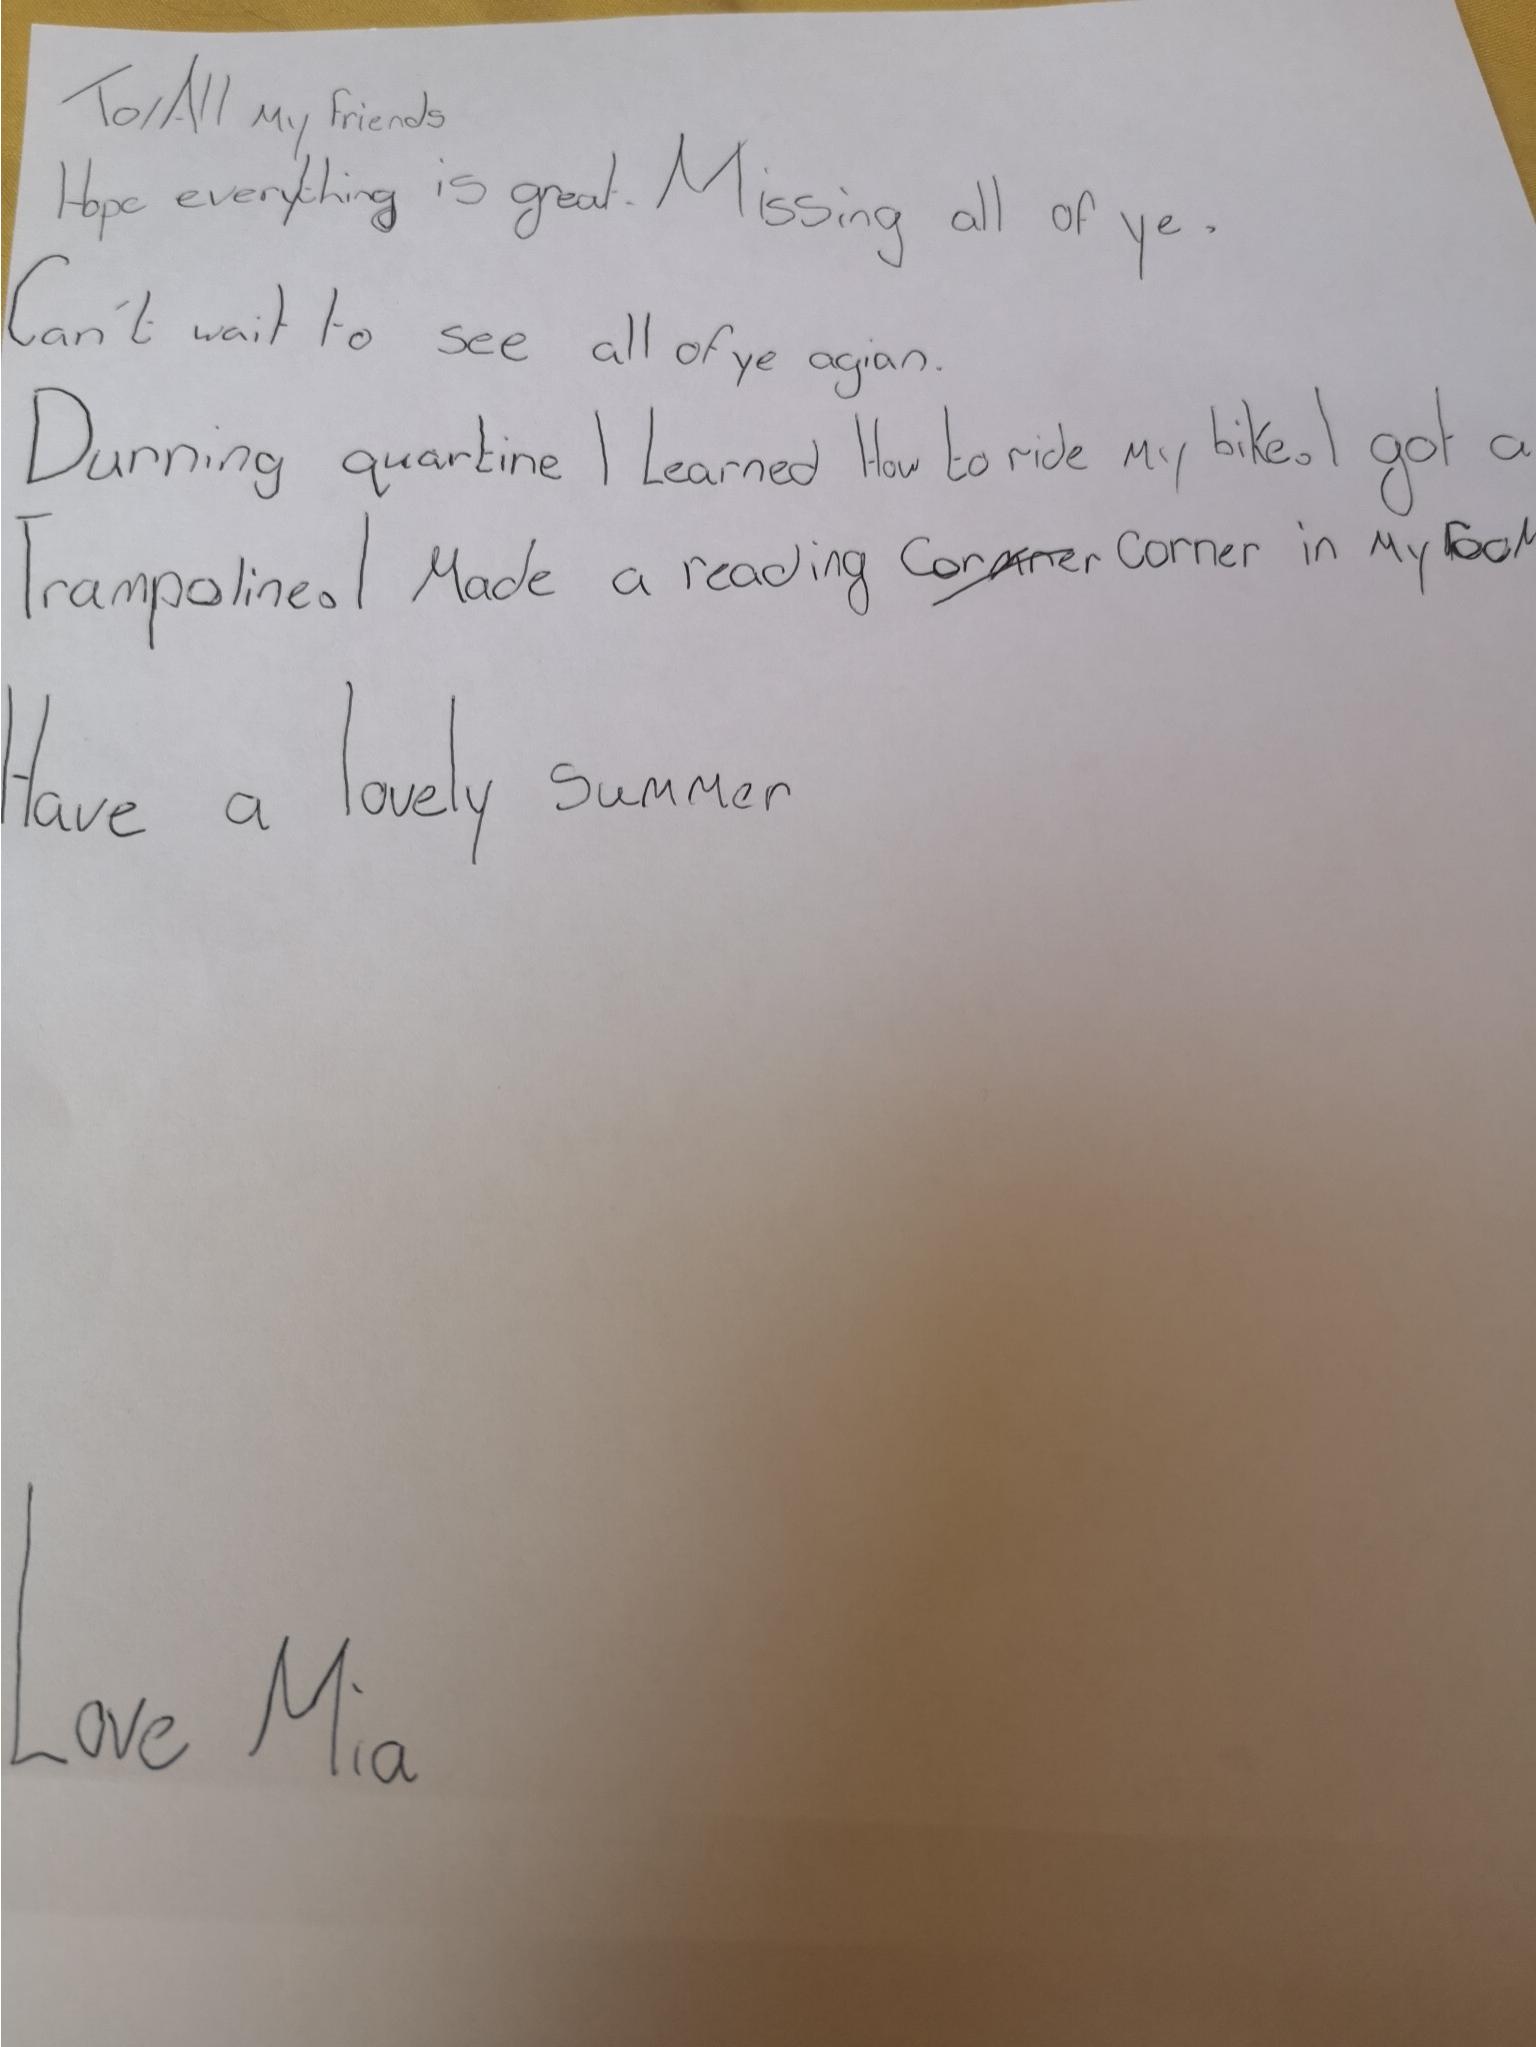 To/All My Friends
Hope everything is great. Missing all of ye.
Can't wait to see all of ye agian.
Durning quartine I Learned How to ride My bike. I got a
Trampoline. I Made a reading Corner in My rooM
Have a lovely SumMer
Love Mia